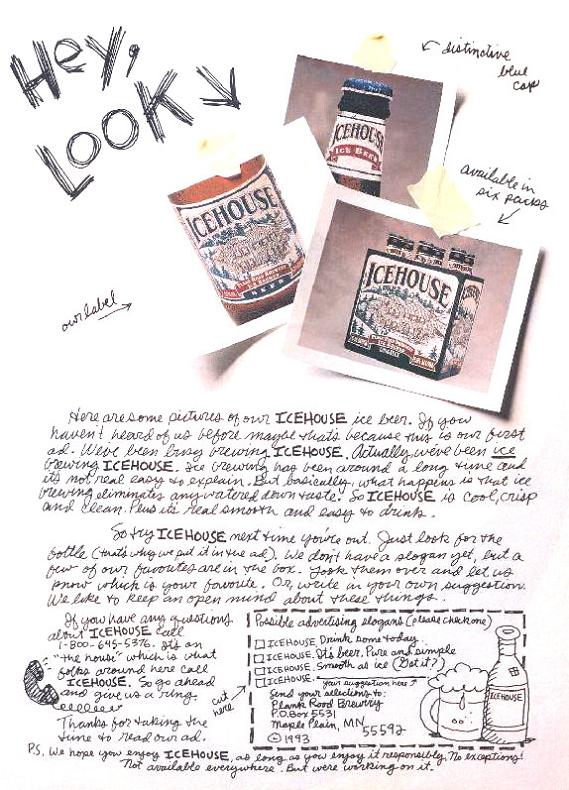 Hey,
LOOK
distinctive
blue
cap
ICEHOUSE
ICE BEER
available in
six packs
ICEHOUSE
PLANK ROAD BREWERY
BEER
ICEHOUSE
our label
Here are some pictures of our ICEHOUSE ice beer. If you
haven't heard of us before maybe that's because this is our first
ad. We've been busy brewing ICEHOUSE. Actually we've been ice
brewing ICEHOUSE. Ice brewing has been around a long time and
it's not real easy to explain. But basically, what happens is that ice
brewing eliminates any watered down taste. So ICEHOUSE is cool, crisp
and clean. Plus it's real smooth and easy to drink.
So try ICEHOUSE next time you're out. Just look for the
bottle (that's why we put it in the ad). We don't have a slogan yet, but a
few of our favorites are in the box. Look them over and let us
know which is your favorite. Or, write in your own suggestion.
We like to keep an open mind about these things.
If you have any questions
about ICEHOUSE call
1-800-645-5376. It's an
"the house" which is what
folks around here call
ICEHOUSE. So go ahead
and give us a ring.
Thanks for taking the
time to read our ad.
cut
here
Possible advertising slogans (please check one)
ICEHOUSE. Drink some today.
ICEHOUSE. It's beer. Pure and simple
ICEHOUSE. Smooth as ice (Get it?)
ICEHOUSE.
your suggestion here
Send your selections to:
Plank Road Brewery
P.O. Box 5531
Maple Plain, MN
55592
© 1993
ICEHOUSE
P.S. We hope you enjoy ICEHOUSE, as long as you enjoy it responsibly. No exceptions!
Not available everywhere. But we're working on it.